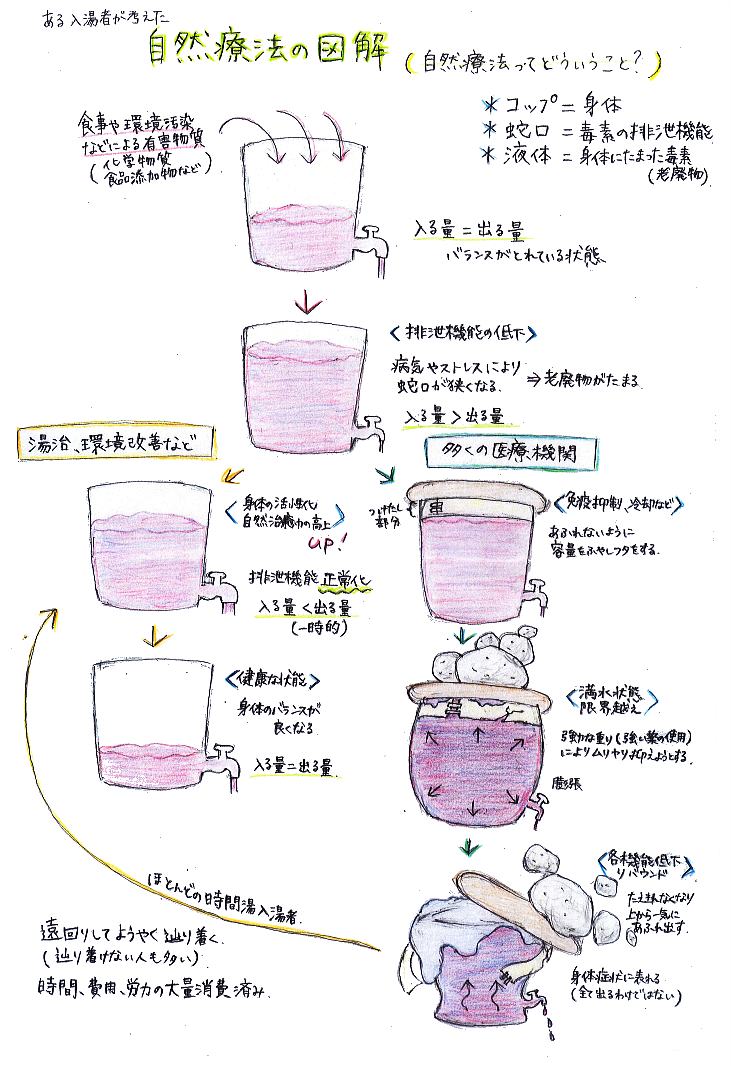 ある入湯者が考えた
自然療法の図解
(自然療法ってどういうこと?)
＊コップ＝身体
＊蛇口＝毒素の排泄機能
＊液体＝身体にたまった毒素
(老廃物)
食事や環境汚染
などによる有害物質
(化学物質
食品添加物など)
入る量＝出る量
バランスがとれている状態
〈排泄機能の低下〉
病気やストレスにより
蛇口が狭くなる。
⇒老廃物がたまる
入る量＞出る量
湯治、環境改善など
〈身体の活性化
自然治癒力の高上〉
UP!
排泄機能正常化
入る量＜出る量
(一時的)
〈健康な状態〉
身体のバランスが
良くなる
入る量＝出る量
多くの医療機関
つけたし
部分
〈免疫抑制、冷却など〉
あふれないように
容量をふやしフタをする。
〈満水状態
限界越え〉
強力な重り(強い薬の使用)
によりムリヤリ抑えようとする。
膨張
〈各機能低下
リバウンド〉
たえきれなくなり
上から一気に
あふれ出す。
身体症状に表れる
(全て出るわけではない)
ほとんどの時間湯入湯者
遠回りしてようやく辿り着く。
(辿り着けない人も多い)
時間、費用、労力の大量消費済み。